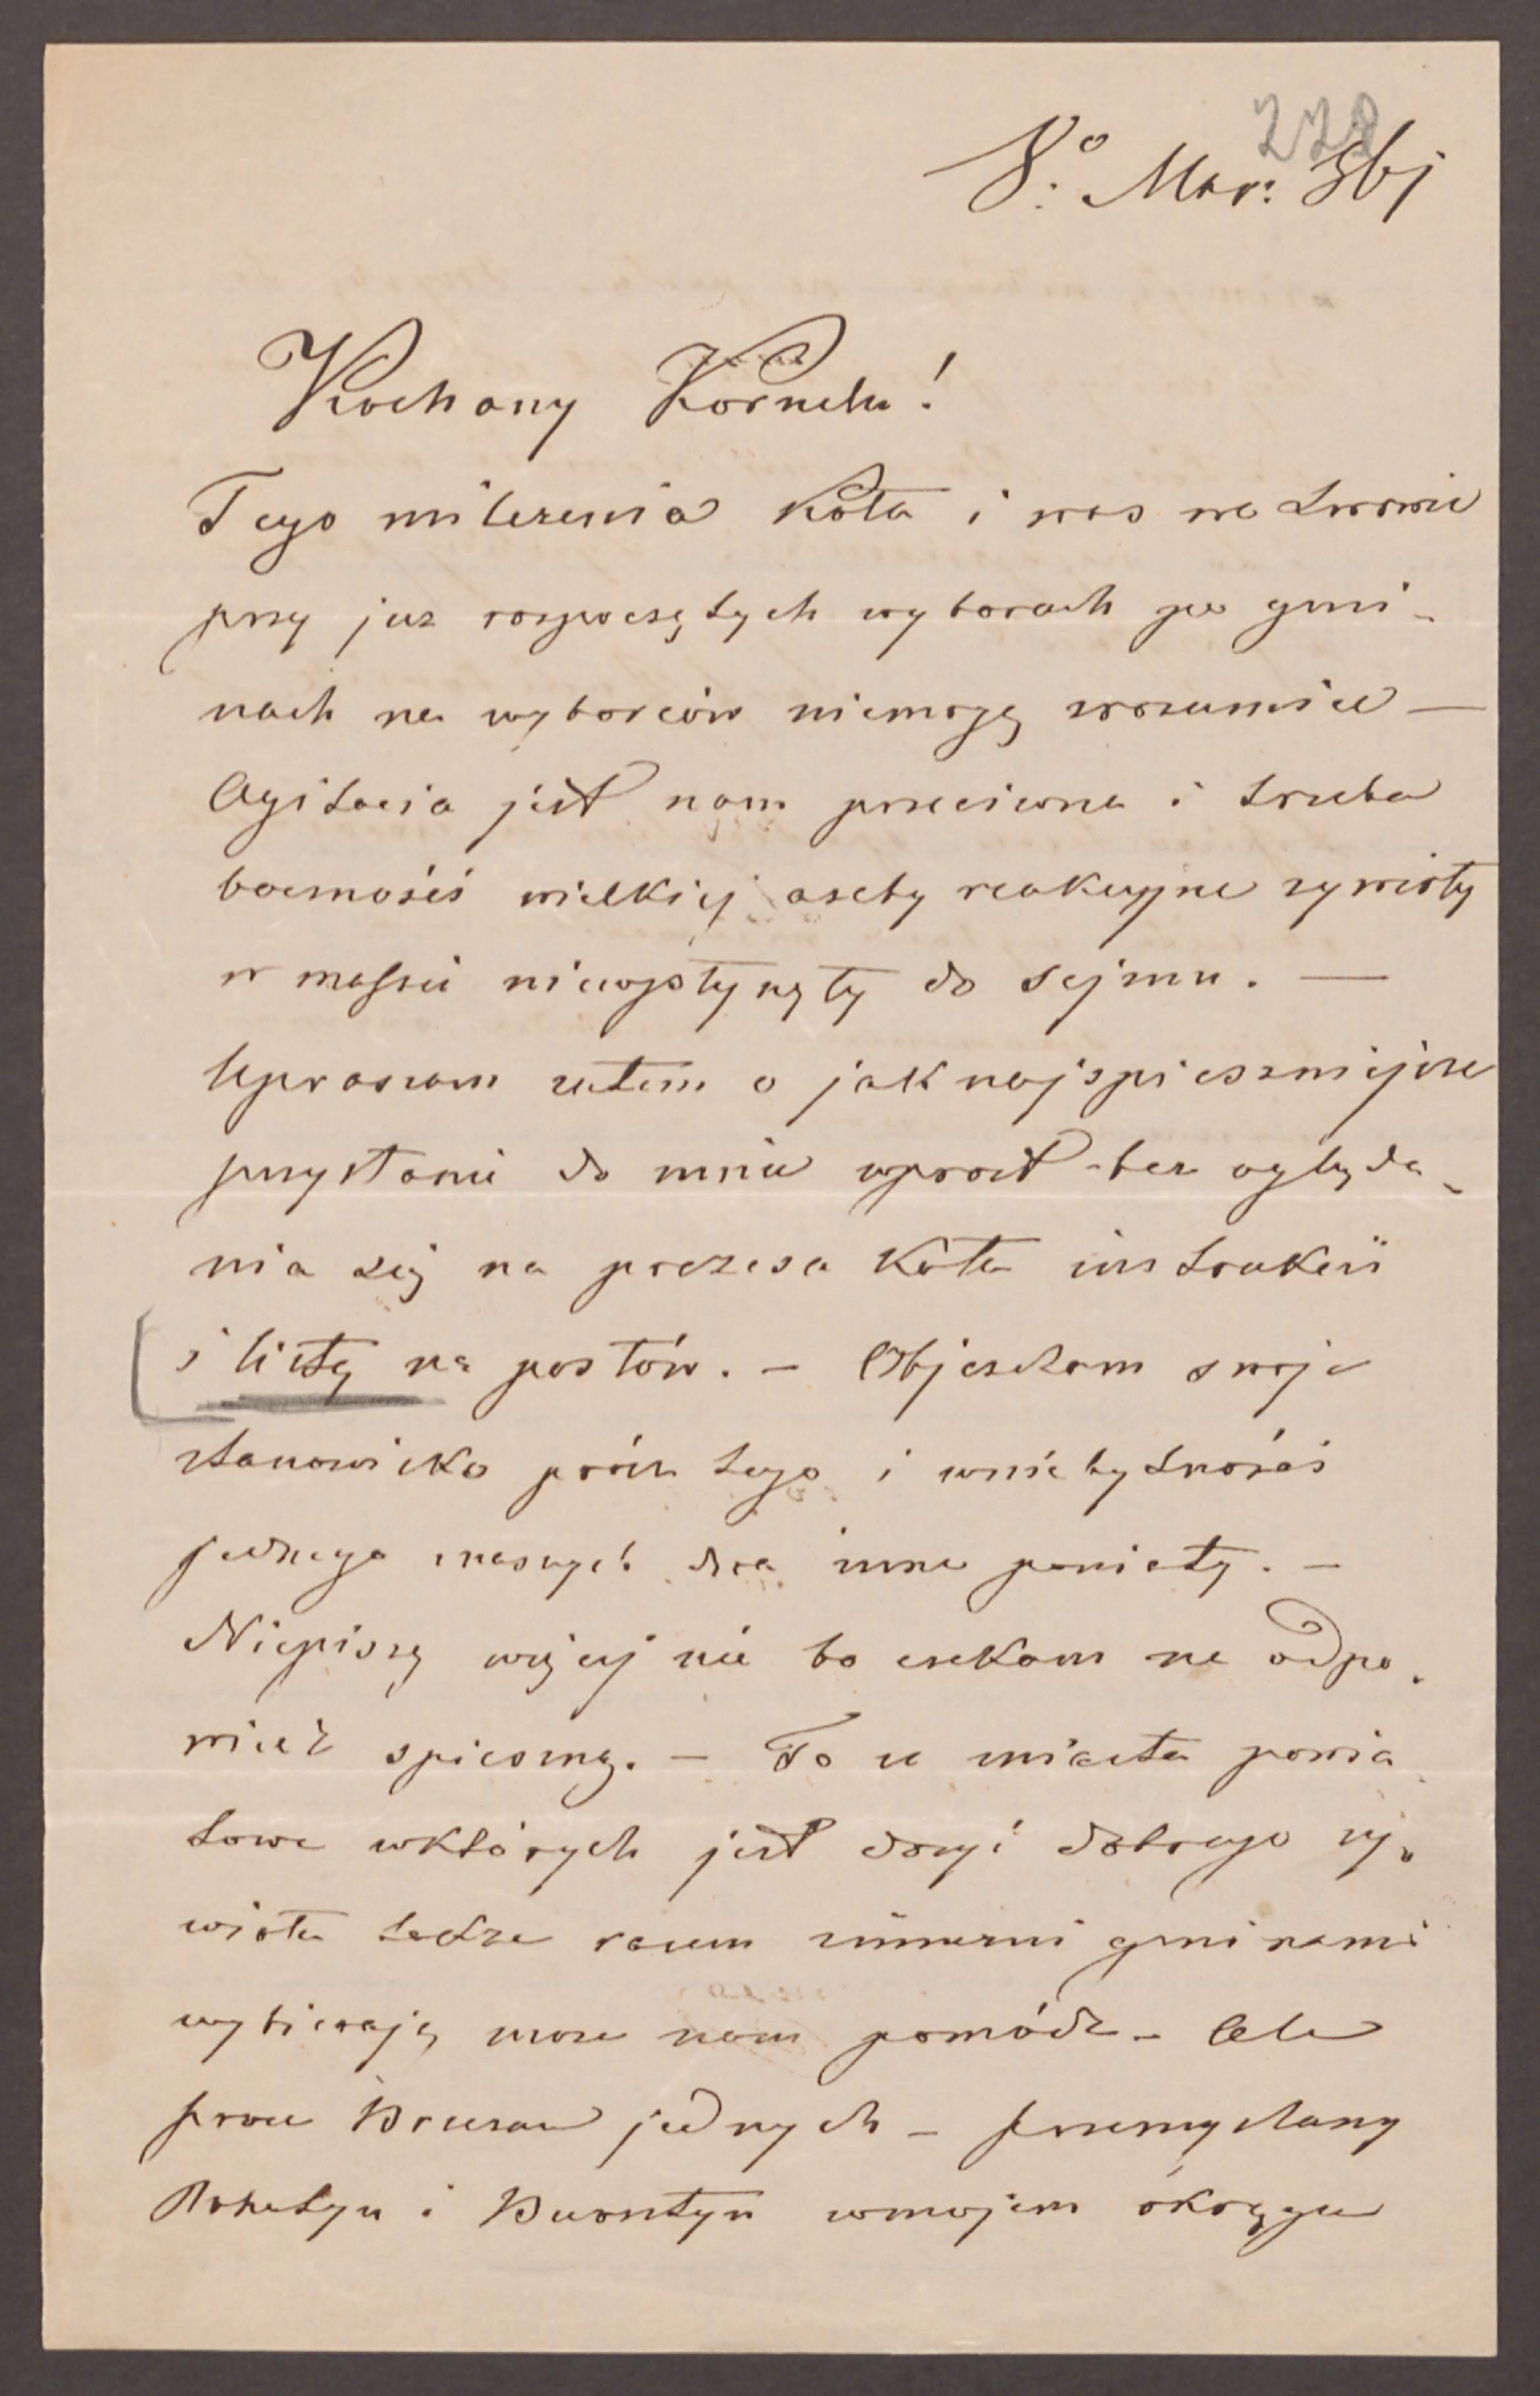 228
8º Mar: 861
Kochany Kornelu!
Tego milczenia Koła i was we Lwowie
przy juz rozpoczętych wyborach po gmi-
nach na wyborców niemogę zrozumieć —
Agitacia jest nam przeciwna i trzeba
baczności wielkiej azeby reakcyjne zywioły
w massie niewpłynęły do sejmu. —
Upraszam zatem o jak najspieszniejsze
przysłanie do mnie wprost bez ogląda-
nia się na prezesa Koła instrukcii
i listę na posłów. — Objechałem swoje
stanowisko prócz tego i w niebytności
jednego znaszych dwa inne powiaty. —
Niepiszę więcej nic bo czekam na odpo-
wiedź spieszną. — To ze miasta powia
towe wktórych jest dosyć dobrego zy-
wiołu także razem zinnemi gminami
wybierają moze nam pomódz — Ale
procz Brzezan jednych — Przemyslany
Rohatyn i Bursztyn wmojem okręgu